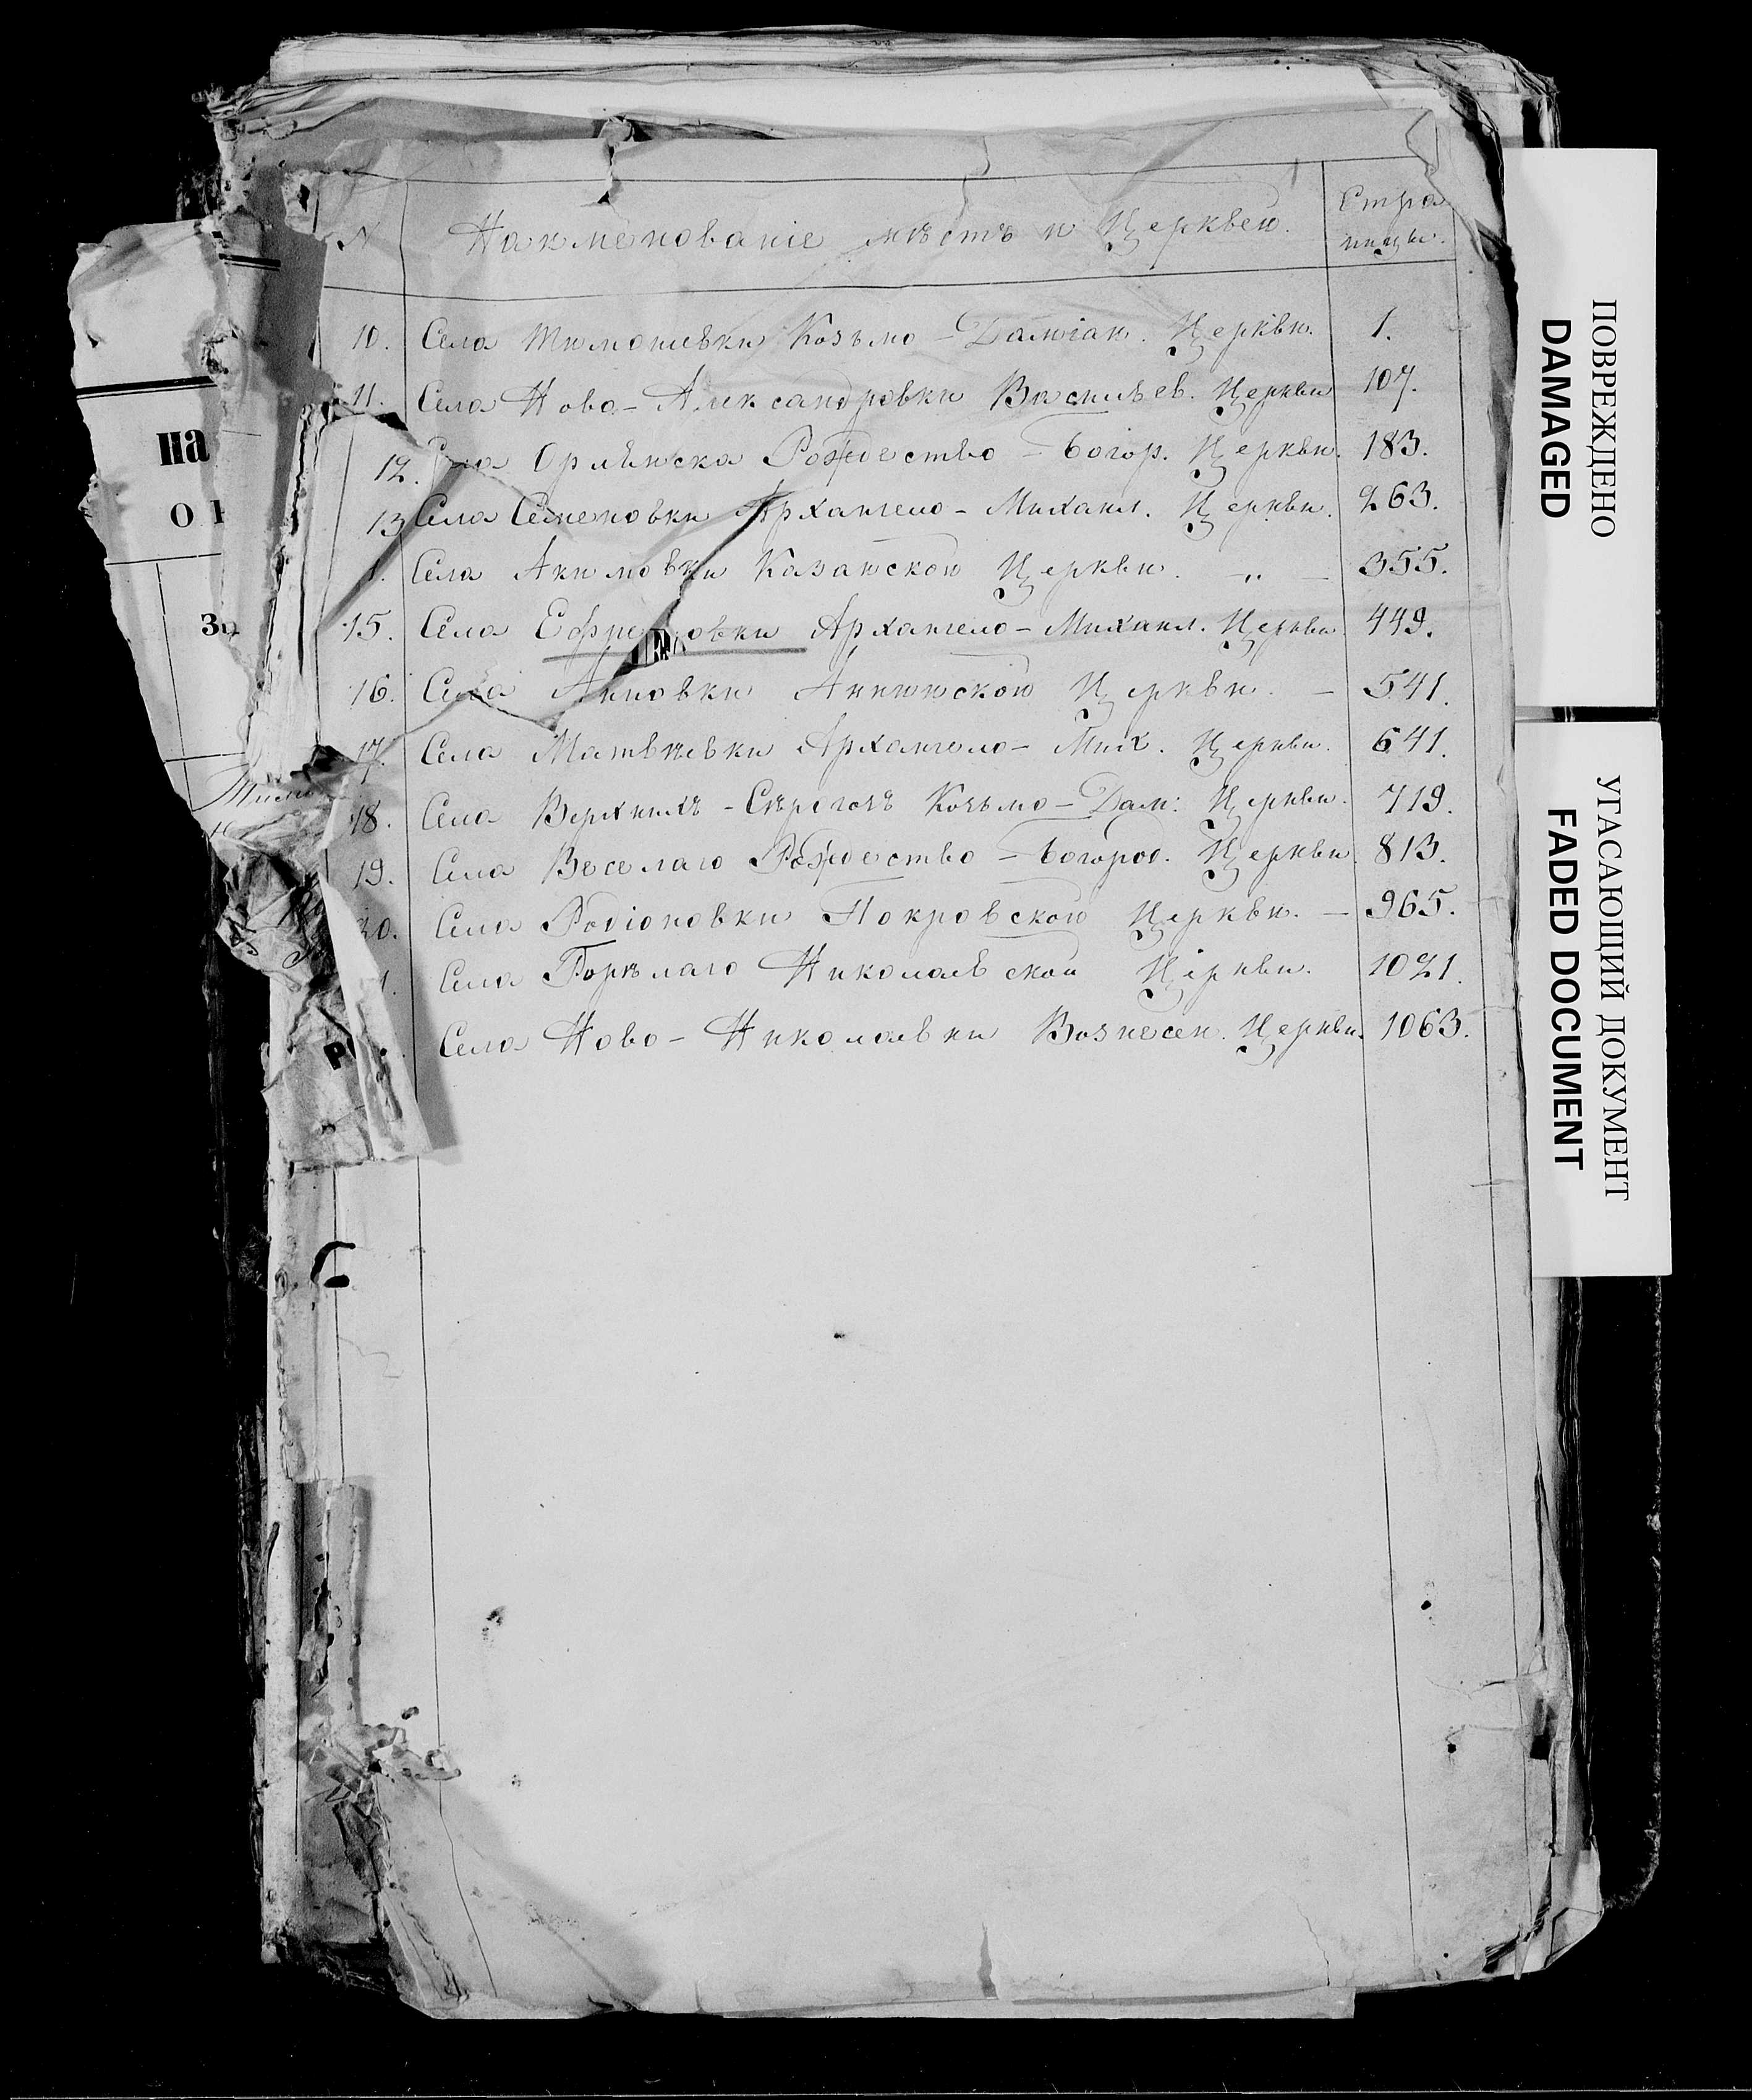 N Наименованіе мѣстъ и Церквей. Страницы.
10. Села Тимошевки Козьмо-Даміан. Церкви. 1.
11. Села Ново-Александровки Васильев. Церкви 107.
12. Села Орлянска Рождество-Богор. Церкви. 183.
13 Села Семеновки Архангело-Михаил. Церкви. 263.
Села Акимовки Казанской Церкви. — „ — 355.
15. Села Ефремовки Архангело-Михаил. Церкви. 449.
16. Села Анновки Аннинской Церкви. — 541.
17. Села Матвѣевки Архангело-Мих. Церкви. 641.
18. Села Верхнихъ-Сѣрогозъ Козьмо-Дам: Церкви. 719.
19. Села Веселаго Рождество-Богород. Церкви. 813.
20. Села Родіоновки Покровской Церкви. — 965.
1. Села Горѣлаго Николаевской Церкви. 1021.
Села Ново-Николаевки Вознесен. Церкви. 1063.
на
О
За
ПОВРЕЖДЕНО
DAMAGED
УГАСАЮЩИЙ ДОКУМЕНТ
FADED DOCUMENT